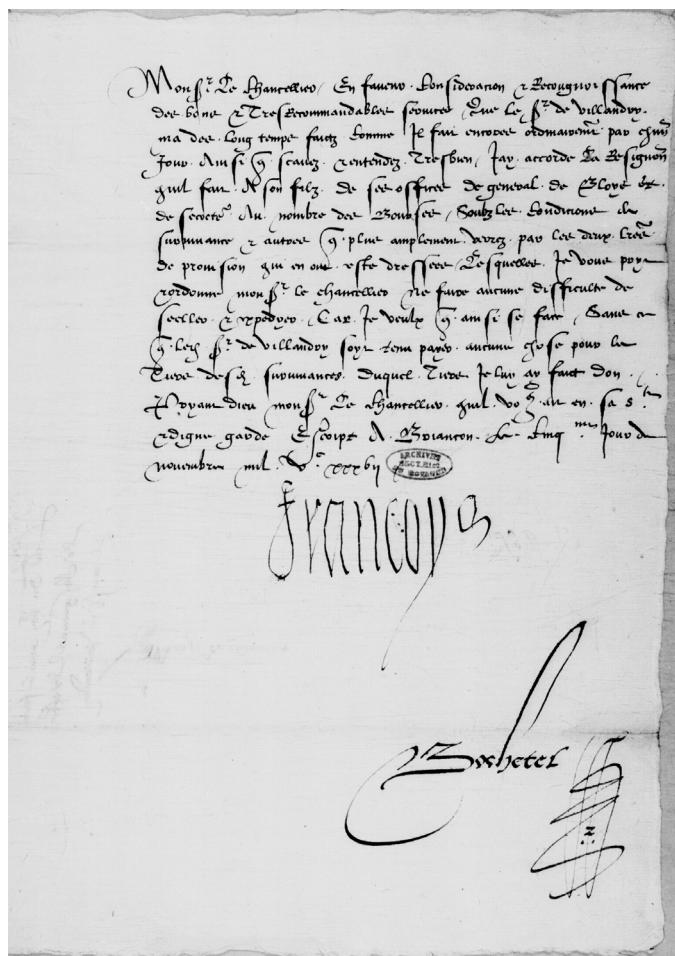 Mons.r Le Chancellier, En faveur Consideracion & Recougnoissance
des bons & Tresrecommandables services Que le s.r de villandry
ma des long temps faictz Comme Il fait encores ordinairem.t par ch.un
Jour Ainsi q scavez & entendez Tresbien, Jay accorde La Resignon
quil fait A son filz de ses offices de general de Bloys et
de secret.e Au nombre des Bourses, Soubz les Condicions de
survivance & autres q plus amplement verrez par les deux l.res
de provision qui en ont este dressees Lesquelles Je vous prye
& ordonne mons.r le chancellier Ne faire aucune difficulte de
seeller & expedyer Car Je veulx q ainsi se face, Sans ce
q led. s.r de villandry soyt tenu payer aucune chose pour le
Tiers desd. survivances Duquel Tiers Je luy ay faict don
Pryant dieu mons.r Le chancellier quil vo9 ait en sa s.te
& digne garde Escript A Briancon Le Cinq.me Jour de
novembre mil V.c xxxvii
ARCHIVES
Francoys
Bochetel